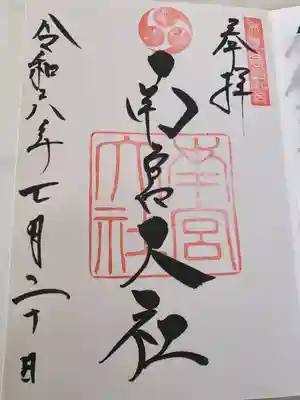 奉拝
南宮大社
南宮大社
令和六年七月二十日